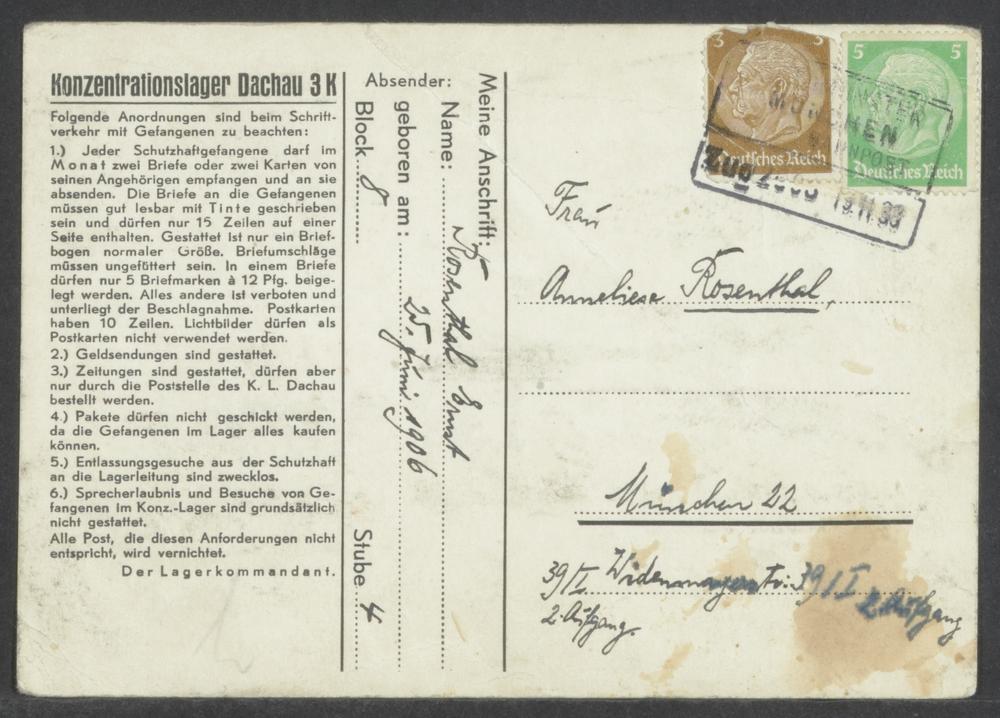 Konzentrationslager Dachau 3 K
Folgende Anordnungen sind beim Schrift-
verkehr mit Gefangenen zu beachten:
1.) Jeder Schutzhaftgefangene darf im
Monat zwei Briefe oder zwei Karten von
seinen Angehörigen empfangen und an sie
absenden. Die Briefe an die Gefangenen
müssen gut lesbar mit Tinte geschrieben
sein und dürfen nur 15 Zeilen auf einer
Seite enthalten. Gestattet ist nur ein Brief-
bogen normaler Größe. Briefumschläge
müssen ungefüttert sein. In einem Briefe
dürfen nur 5 Briefmarken à 12 Pfg. beige-
legt werden. Alles andere ist verboten und
unterliegt der Beschlagnahme. Postkarten
haben 10 Zeilen. Lichtbilder dürfen als
Postkarten nicht verwendet werden.
2.) Geldsendungen sind gestattet.
3.) Zeitungen sind gestattet, dürfen aber
nur durch die Poststelle des K. L. Dachau
bestellt werden.
4.) Pakete dürfen nicht geschickt werden,
da die Gefangenen im Lager alles kaufen
können.
5.) Entlassungsgesuche aus der Schutzhaft
an die Lagerleitung sind zwecklos.
6.) Sprecherlaubnis und Besuche von Ge-
fangenen im Konz.-Lager sind grundsätzlich
nicht gestattet.
Alle Post, die diesen Anforderungen nicht
entspricht, wird vernichtet.
Der Lagerkommandant.
Absender:
Meine Anschrift:
Name: Rosenthal Ernst
geboren am: 25. Juni 1906
Block 8 Stube 4
3 3
Deutsches Reich
5 5
Deutsches Reich
MÜNCHEN
BAHNPOST
Zug 19 11 38
Frau
Anneliese Rosenthal,
München 22
39/I Widenmayerstr. 39/I
2. Aufgang 2. Aufgang